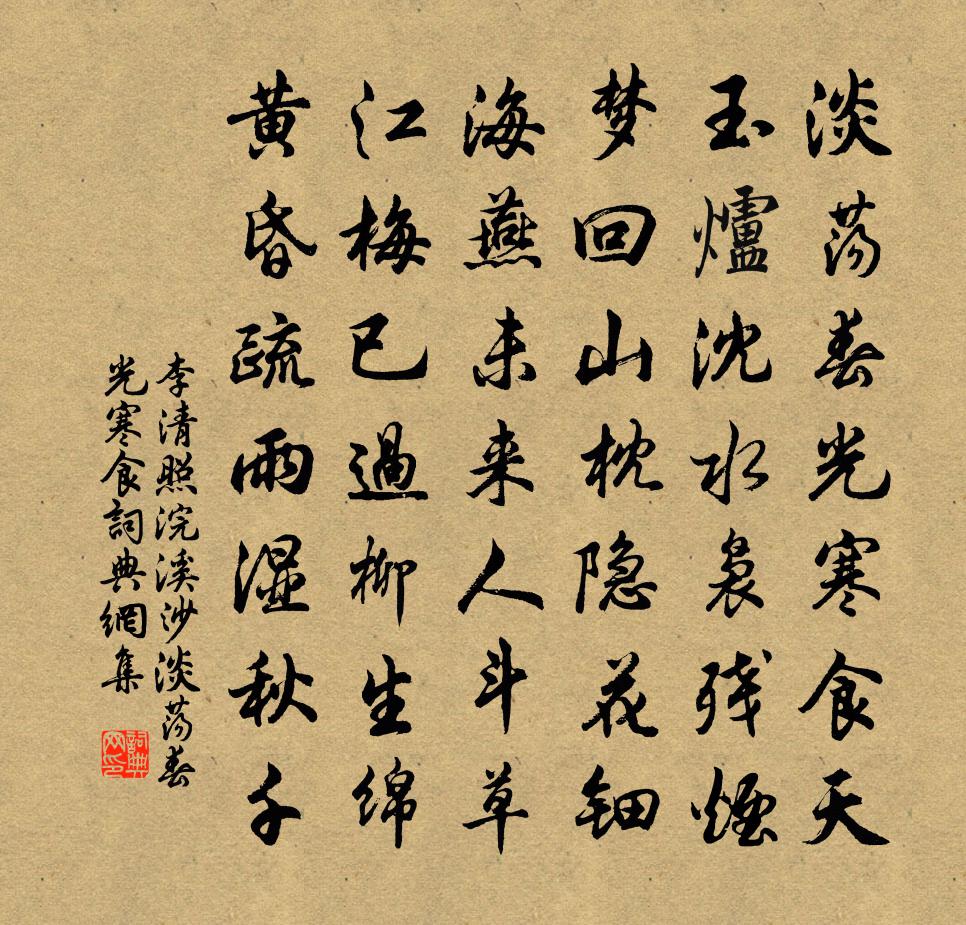 淡荡春光寒食天
玉爐沈水袅残煙
梦回山枕隐花钿
海燕未来人斗草
江梅已過柳生绵
黄昏疏雨湿秋千
李清照浣溪沙淡荡春
光寒食詞典網集
詞典
网印